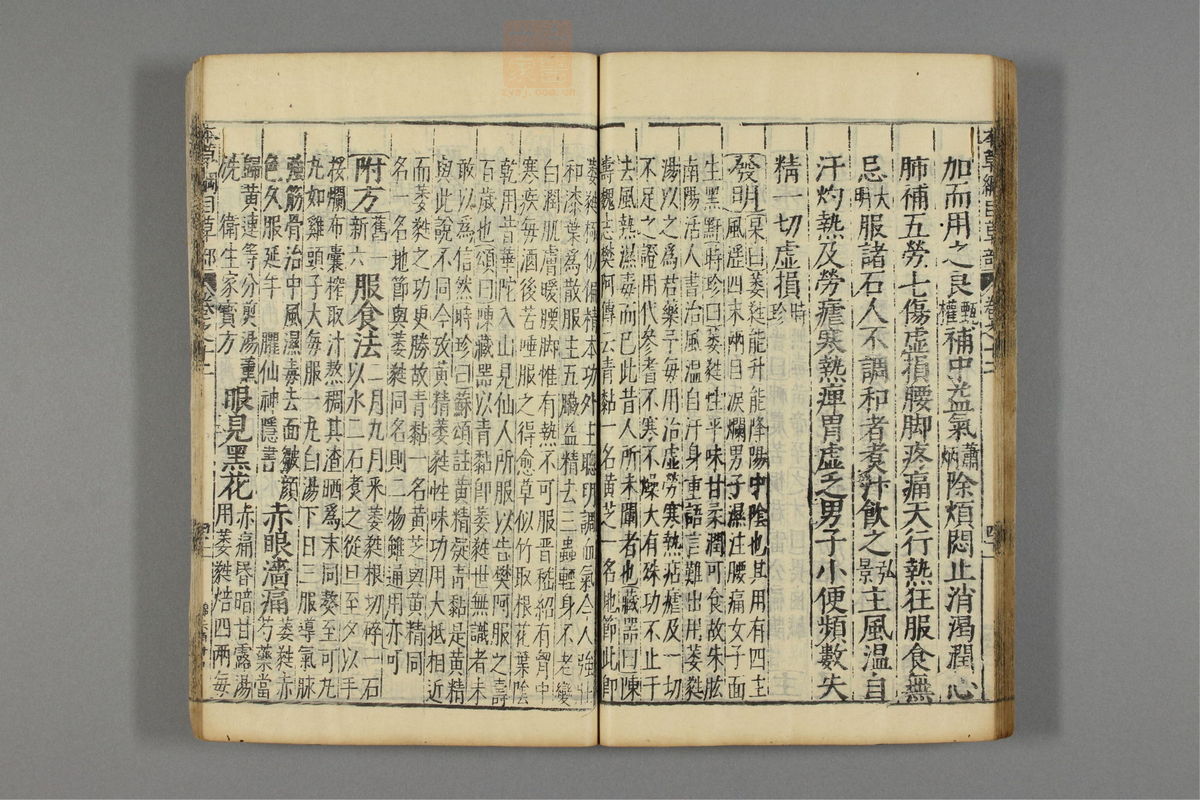 加而用之良甄權補中益氣蕭炳除煩悶止消渴潤心
肺補五勞七傷虛損腰脚疼痛天行熱狂服食無
忌大明服諸石人不調和者煮汁飲之弘景主風溫自
汗灼熱及勞瘧寒熱脾胃虛乏男子小便頻數失
精一切虛損時珍
發明杲曰萎蕤能升能降陽中陰也其用有四主
風淫四末兩目淚爛男子濕注腰痛女子面
生黑䵟時珍曰萎蕤性平味甘柔潤可食故朱肱
南陽活人書治風溫自汗身重語言難出用萎蕤
湯以之為君藥予每用治虛勞寒熱痁瘧及一切
不足之證用代參耆不寒不燥大有殊功不止于
去風熱濕毒而已此昔人所未闡者也藏器曰陳
壽魏志樊阿傳云青黏一名黃芝一名地節此即
萎蕤極似偏精本功外主聰明調血氣令人強壯
和漆葉為散服主五臟益精去三蟲輕身不老變
白潤肌膚暖腰脚惟有熱不可服晋嵇紹有胷中
寒疾每酒後苦唾服之得愈草似竹取根花葉陰
乾用昔華陀入山見仙人所服以告樊阿服之壽
百歲也頌曰陳藏器以青黏即萎蕤世無識者未
敢以為信然時珍曰蘇頌註黃精疑青黏是黃精
與此說不同今攷黃精萎蕤性味功用大抵相近
而萎蕤之功更勝故青黏一名黃芝與黃精同
名一名地節與萎蕤同名則二物雖通用亦可
附方舊一新六服食法二月九月采萎蕤根切碎一石
以水二石煮之從旦至夕以手
挼爛布囊榨取汁熬稠其渣晒為末同熬至可丸
丸如雞頭子大每服一丸白湯下日三服導氣脉
強筋骨治中風濕毒去面皺顏
色久服延年臞仙神隱書赤眼濇痛萎蕤赤芍藥當
歸黃連等分煎湯薰
洗衛生家寳方眼見黑花赤痛昏暗甘露湯
用萎蕤焙四兩每
本草綱目草部
卷之十二